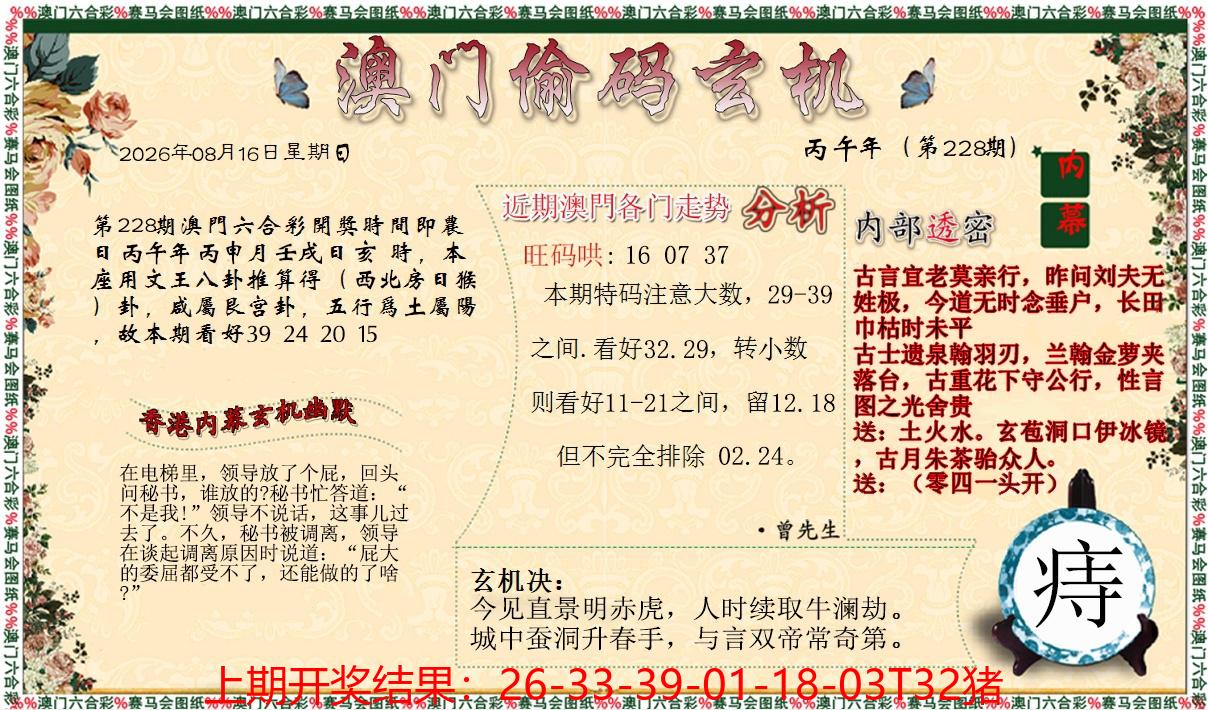 %%澳门六合彩%赛马会图纸%%澳门六合彩%赛马会图纸%%澳门六合彩%赛马会图纸%%澳门六合彩%赛马会图纸%%澳门六合彩%赛马会图纸%%
澳门偷码玄机
2026年08月16日星期日
丙午年（第228期）
内幕
第228期澳門六合彩開獎時間即農
日丙午年丙申月壬戌日亥 時，本
座用文王八卦推算得（西北房日猴
）卦，咸屬艮宫卦，五行爲土屬陽
，故本期看好39 24 20 15
香港内幕玄机幽默
在电梯里，领导放了个屁，回头
问秘书，谁放的?秘书忙答道：“
不是我!”领导不说话，这事儿过
去了。不久，秘书被调离，领导
在谈起调离原因时说道：“屁大
的委屈都受不了，还能做的了啥
?”
近期澳門各门走势 分析
旺码哄: 16 07 37
本期特码注意大数，29-39
之间.看好32.29，转小数
则看好11-21之间，留12.18
但不完全排除 02.24。
·曾先生
内部透密
古言宜老莫亲行，昨问刘夫无
姓极，今道无时念垂户，长田
巾枯时未平
古士遗泉翰羽刃，兰翰金萝夹
落台，古重花下守公行，性言
图之光舍贵
送：土火水。玄苞洞口伊冰镜
，古月朱茶骀众人。
送：（零四一头开）
痔
玄机决：
今见直景明赤虎，人时续取牛澜劫。
城中蚕洞升春手，与言双帝常奇第。
上期开奖结果：26-33-39-01-18-03T32猪